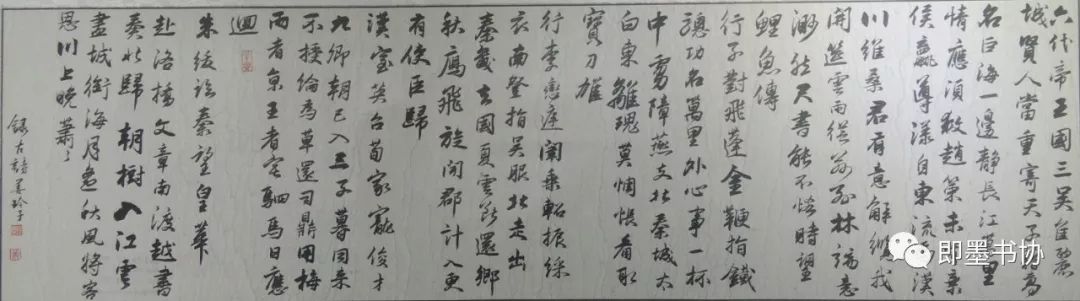 六代帝王國三吳佳麗
城賢人當重寄天子借高
名巨海一邊靜長江萬里
清應須救趙策未棄
侯嬴導漾自東流漢
川維桑君有意解纜我
開筵雲雨從茲別林端意
渺然尺書能不恡時望
鯉魚傳
行子對飛蓬金鞭指鐵
驄功名萬里外心事一杯
中虜障燕支北秦城太
白東離魂莫惆悵看取
寶刀雄
行李戀庭闈乘軺振綵
衣南登指吳服北走出
秦畿去國夏雲斷還鄉
秋鴈飛旋聞郡計入更
有使臣歸
漢室英台荀家寵俊才
九卿朝已入三子暮同來
不授綸為草還司鼎用梅
兩者京王者宅駟馬日應
迴
朱紱詔秦望皇華
赴洛橋文章南渡越書
奏北歸朝樹入江雲
盡城銜海月遙秋風將客
思川上晚蕭〻
錄古詩姜玲子
即墨书协